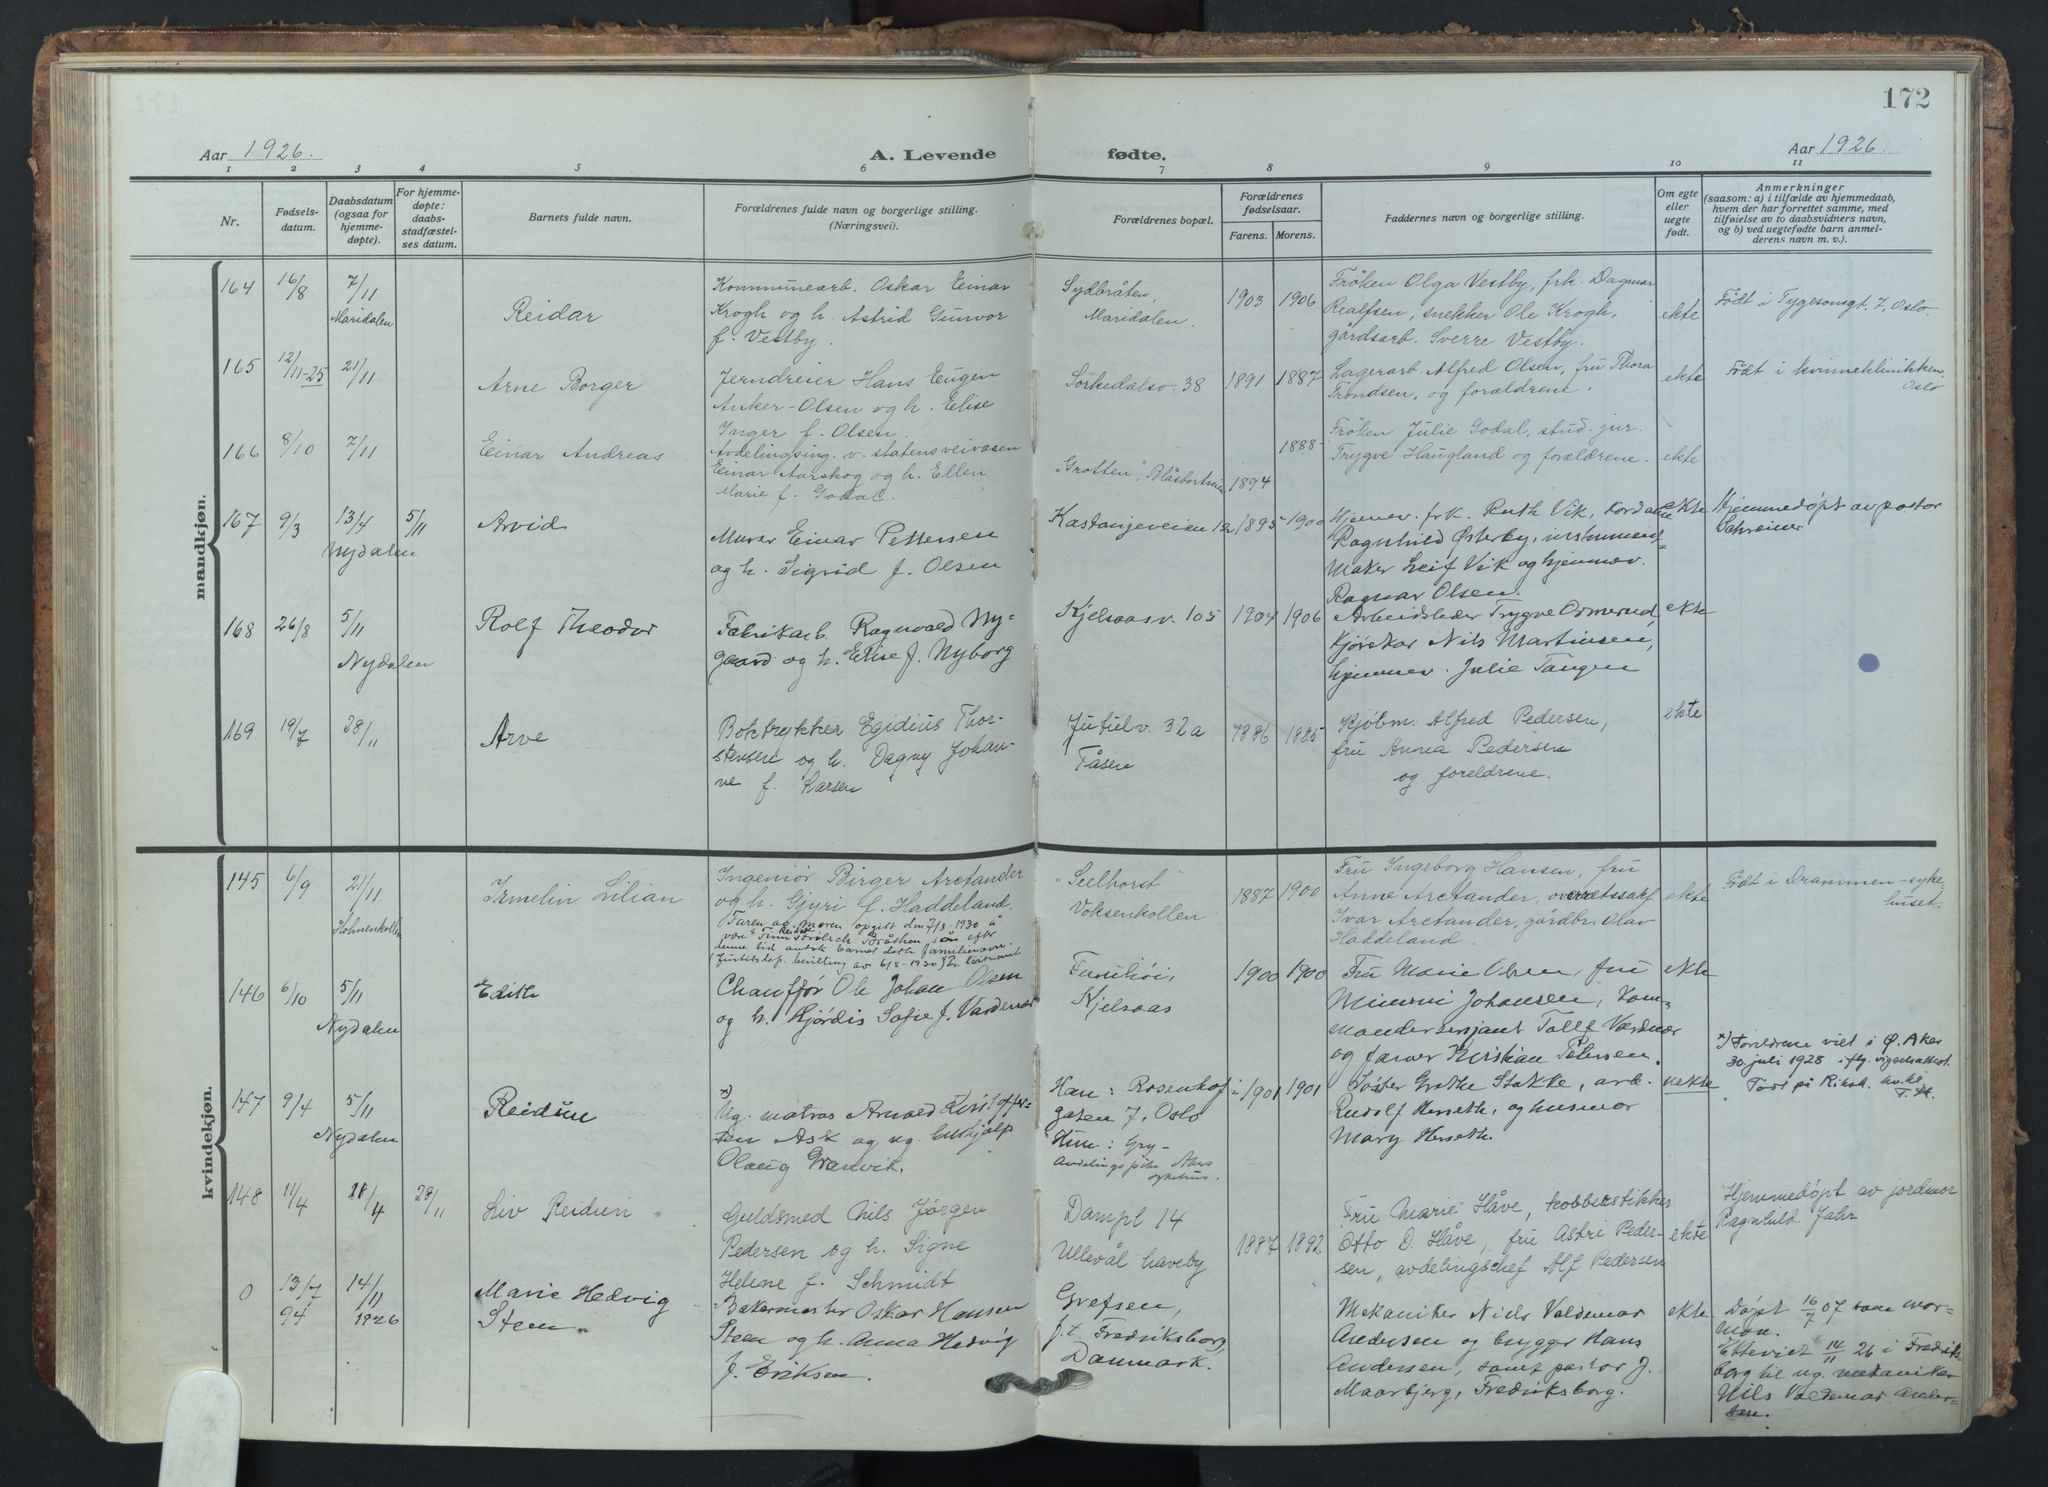 172
Aar 1926.
A. Levende
fødte.
Aar 1926.
1 2 3 4 5 6 7 8 9 10 11
Nr.
Fødsels-
datum.
Daabsdatum
(ogsaa for
hjemme-
døpte).
For hjemme-
døpte:
daabs-
stadfæstel-
ses datum.
Barnets fulde navn.
Forældrenes fulde navn og borgerlige stilling.
(Næringsvei).
Forældrenes bopæl.
Forældrenes
fødselsaar.
Farens. Morens.
Faddernes navn og borgerlige stilling.
Om egte
eller
uegte
født.
Anmerkninger
(saasom: a) i tilfælde av hjemmedaab,
hvem der har forrettet samme, med
tilføielse av to daabsvidners navn,
og b) ved uegtefødte barn anmel-
derens navn m. v.).
mandkjøn.
164 16/8 7/11
Maridalen
Reidar
Kommunearb. Oskar Einar
Krogh og h. Astrid Gunvor
f. Vestby.
Sydbråten,
Maridalen.
1903 1906
Frøken Olga Vestby, frk. Dagmar
Realfsen, snekker Ole Krogh,
gårdsarb. Sverre Vestby.
ekte
Født i Tygesonsgt. 7, Oslo.
165 12/11-25 21/11
Arne Borger
Jerndreier Hans Eugen
Anker-Olsen og h. Elise
Inger f. Olsen.
Sørkedalsv. 38
1891 1887
Lagerarb. Alfred Olsen, fru Thora
Trondsen, og forældrene.
ekte
Født i kvinneklinikken,
Oslo
166 8/10 7/11
Einar Andreas
Avdelingsing. v. statensveivæsen
Einar Aarskog og h. Ellen
Marie f. Godal.
"Grotten",
1894 1888
Frøken Julie Godal, stud. jur.
Trygve Haugland og forældrene.
ekte
167 9/3 13/4 5/11
Nydalen
Arvid
Murer Einar Pettersen
og h. Sigrid f. Olsen
Kastanjeveien 12
1895 1900
Hjemmev. frk. Ruth Vik,
Ragnhild Østerby, instrument-
maker Leif Vik og hjemmev.
Ragnar Olsen.
ekte
Hjemmedøpt av pastor
Schreiner
168 26/8 5/11
Nydalen
Rolf Theodor
Fabrikarb. Ragnvald Ny-
gaard og h. Elise f. Nyborg
Kjelsaasv. 105
1904 1906
Arbeidsleder Trygve Ormerud,
kjørekar Nils Martinsen,
hjemmev. Julie Tangen
ekte
169 19/7 28/11
Arve
Boktrykker Egidius Thor-
stensen og h. Dagny Johan-
ne f. Larsen
Jutulv. 32a
Tåsen
1886 1885
Kjøbm. Alfred Pedersen,
fru Anna Pedersen
og foreldrene.
ekte
kvindekjøn.
145 6/9 21/11
Holmenkollen
Irmelin Lilian
Ingeniør Birger Arctander
og h. Gyri f. Haddeland.
Faren og moren opgitt den 7/8 1930 å
denne tid antok barnet dette familienavn.
(Justitsdep. bevilling av 6/8-1930)
"Seelhorst"
Voksenkollen
1887 1900
Fru Ingeborg Hansen, fru
Anne Arctander, overretssakf.
Ivar Arctander, gårdbr. Olav
Haddeland.
ekte
Født i Drammen-syke-
huset.
146 6/10 5/11
Nydalen
Edith
Chauffør Ole Johan Olsen
og h. Hjørdis Sofie f. Vardenær
Furulhøi,
Kjelsaas
1900 1900
Fru Marie Olsen, fru
Minemi Johansen, kom-
mandersersjant Tollef Vardenær
og farver Kristian Petersen.
ekte
147 9/4 5/11
Nydalen
Reidun
x)
Ug. matros Arnvald Kristoffer-
sen Ask og ug. hushjælp
Olaug Granvik.
Han: Rosenhof-
gaten 7, Oslo
Hun: Gry-
Avdelingspike Akers
sykehus.
1901 1901
Søster Grethe Stakke, arb.
Rudolf Herseth, og husmor
Mary Herseth.
uekte
x) Foreldrene viet i Ø. Aker
30 juli 1928 iflg. vigselsattest
148 11/4 18/4 28/11
Liv Reidun
Guldsmed Nils Jørgen
Pedersen og h. Signe
Helene f. Schmidt
Dampl 14
Ullevål haveby
1887 1892
Fru Marie Håve, kobberstikker
Otto D. Håve, fru Astri Peder-
sen, avdelingschef Alf Pedersen
ekte
Hjemmedøpt av jordmor
Ragnhild Jahr
0 13/7 94 14/11 1926
Marie Hedvig
Steen.
Bakermester Oskar Hansen
Steen og h. Anna Hedvig
f. Eriksen.
Grefsen,
f.t. Fredriksborg,
Danmark.
Mekaniker Niels Valdemar
Andersen og brygger Hans
Andersen, samt pastor J.
Maarbjerg, Fredriksborg.
ekte
Døpt 16/7 07 som mor-
mon.
Ekteviet 14/11 26 i Fredriks-
borg til ug. mekaniker
Nils Valdemar Ander-
sen.